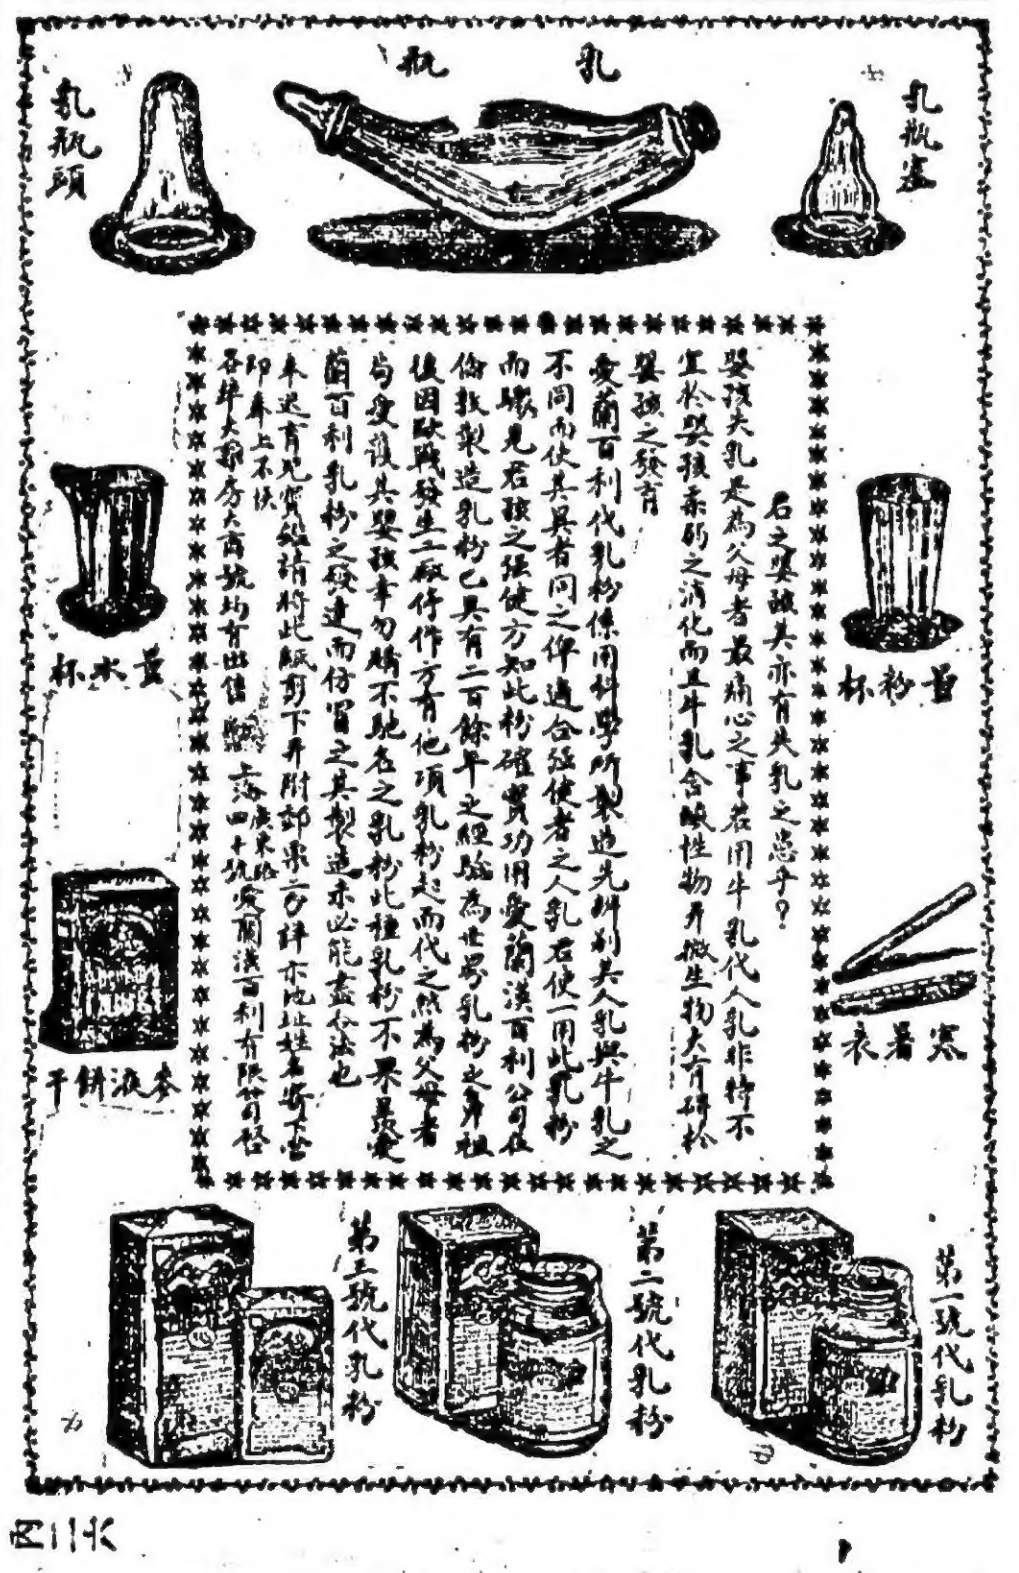 乳瓶塞
乳瓶
乳瓶頭
君之嬰孩其亦有失乳之患乎？
嬰孩失乳是為父母者最痛心之事若用牛乳代人乳非特不
宜於嬰孩柔弱之消化而且牛乳含酸性物并微生物大有碍於
嬰孩之發育
愛蘭百利代乳粉係用科學所製造先辨別其人乳與牛乳之
不同而使其異者同之俾適合經使者之人乳若使一用此乳粉
而驟見君孩之强健方知此粉確實功用愛蘭漢百利公司在
倫敦製造乳粉已具有二百餘年之經驗為世界乳粉之鼻祖
後因歐戰發生工廠停作方有他項乳粉起而代之然為父母者
苟愛護其嬰孩幸勿購不馳名之乳粉此種乳粉不果是愛
蘭百利乳粉之發達而仿冒之其製造未必能盡合法也
本退育兒寶鑑請將此紙剪下并附郵票二分詳示地址姓名寄下當
即奉上不悞
各埠大藥房大商號均有出售
上海廣東路四十號愛蘭漢百利有限公司啓
量粉杯
量水杯
寒暑表
麥液餅干
第一號代乳粉
第二號代乳粉
第三號代乳粉